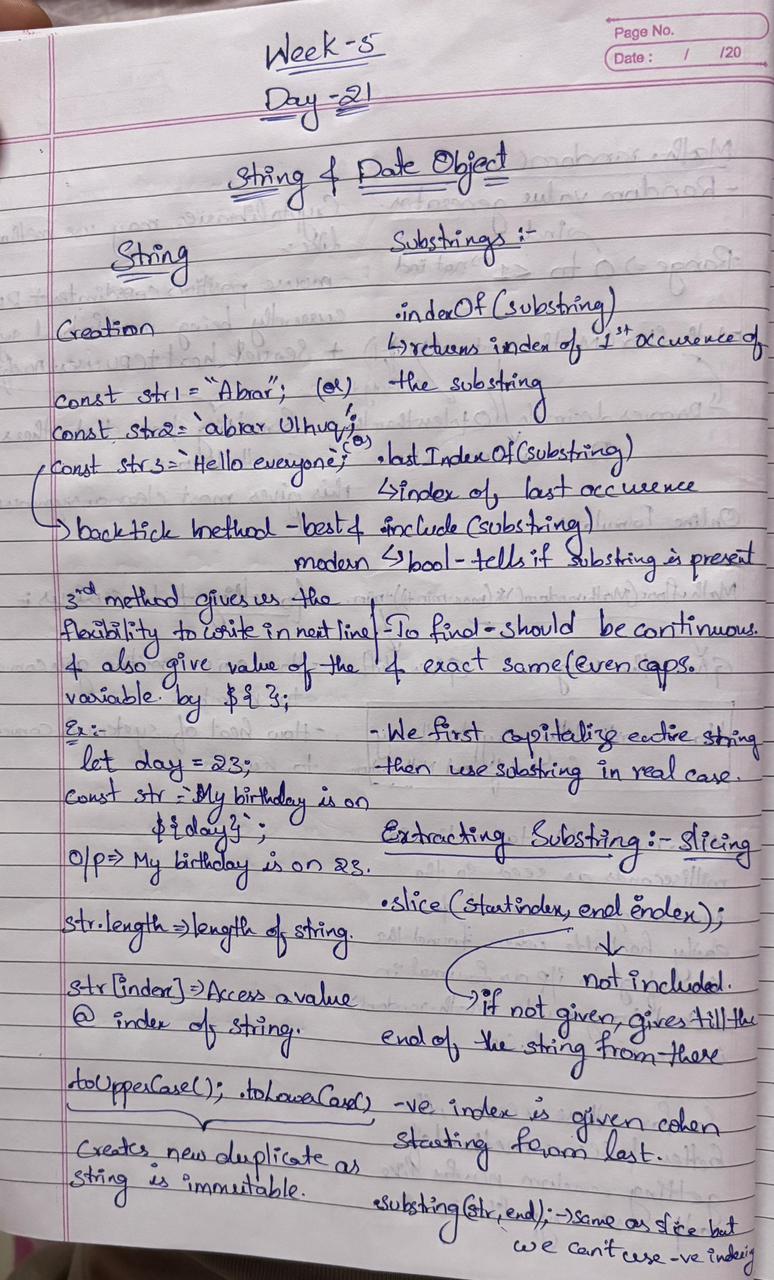 Page No.
Date : / /20
Week-5
Day-21
String & Date Object
String
Creation
const str1 = "Abrar"; (or)
const str2 = 'abrar Ulhuq'; (or)
const str3 = `Hello everyone`;
backtick method - best &
modern
3rd method gives us the
flexibility to write in next line
& also give value of the
variable by ${ };
Ex:-
let day = 23;
const str = `My birthday is on
${day}`;
O/p => My birthday is on 23.
str.length => length of string.
str[index] => Access a value
@ index of string.
.toUpperCase(); .toLowerCase()
Creates new duplicate as
string is immutable.
Substrings :-
.indexOf(substring)
↳ returns index of 1st occurence of
the substring
.lastIndexOf(substring)
↳ index of last occurence
.include(substring)
↳ bool - tells if substring is present
- To find - should be continuous.
& exact same (even caps.
- We first capitalize entire string
then use substring in real case.
Extracting Substring :- slicing
.slice(startindex, end index);
↓
not included.
→ if not given, gives till the
end of the string from there
-ve index is given when
starting from last.
.substring(str, end); → same as slice but
we can't use -ve indexig